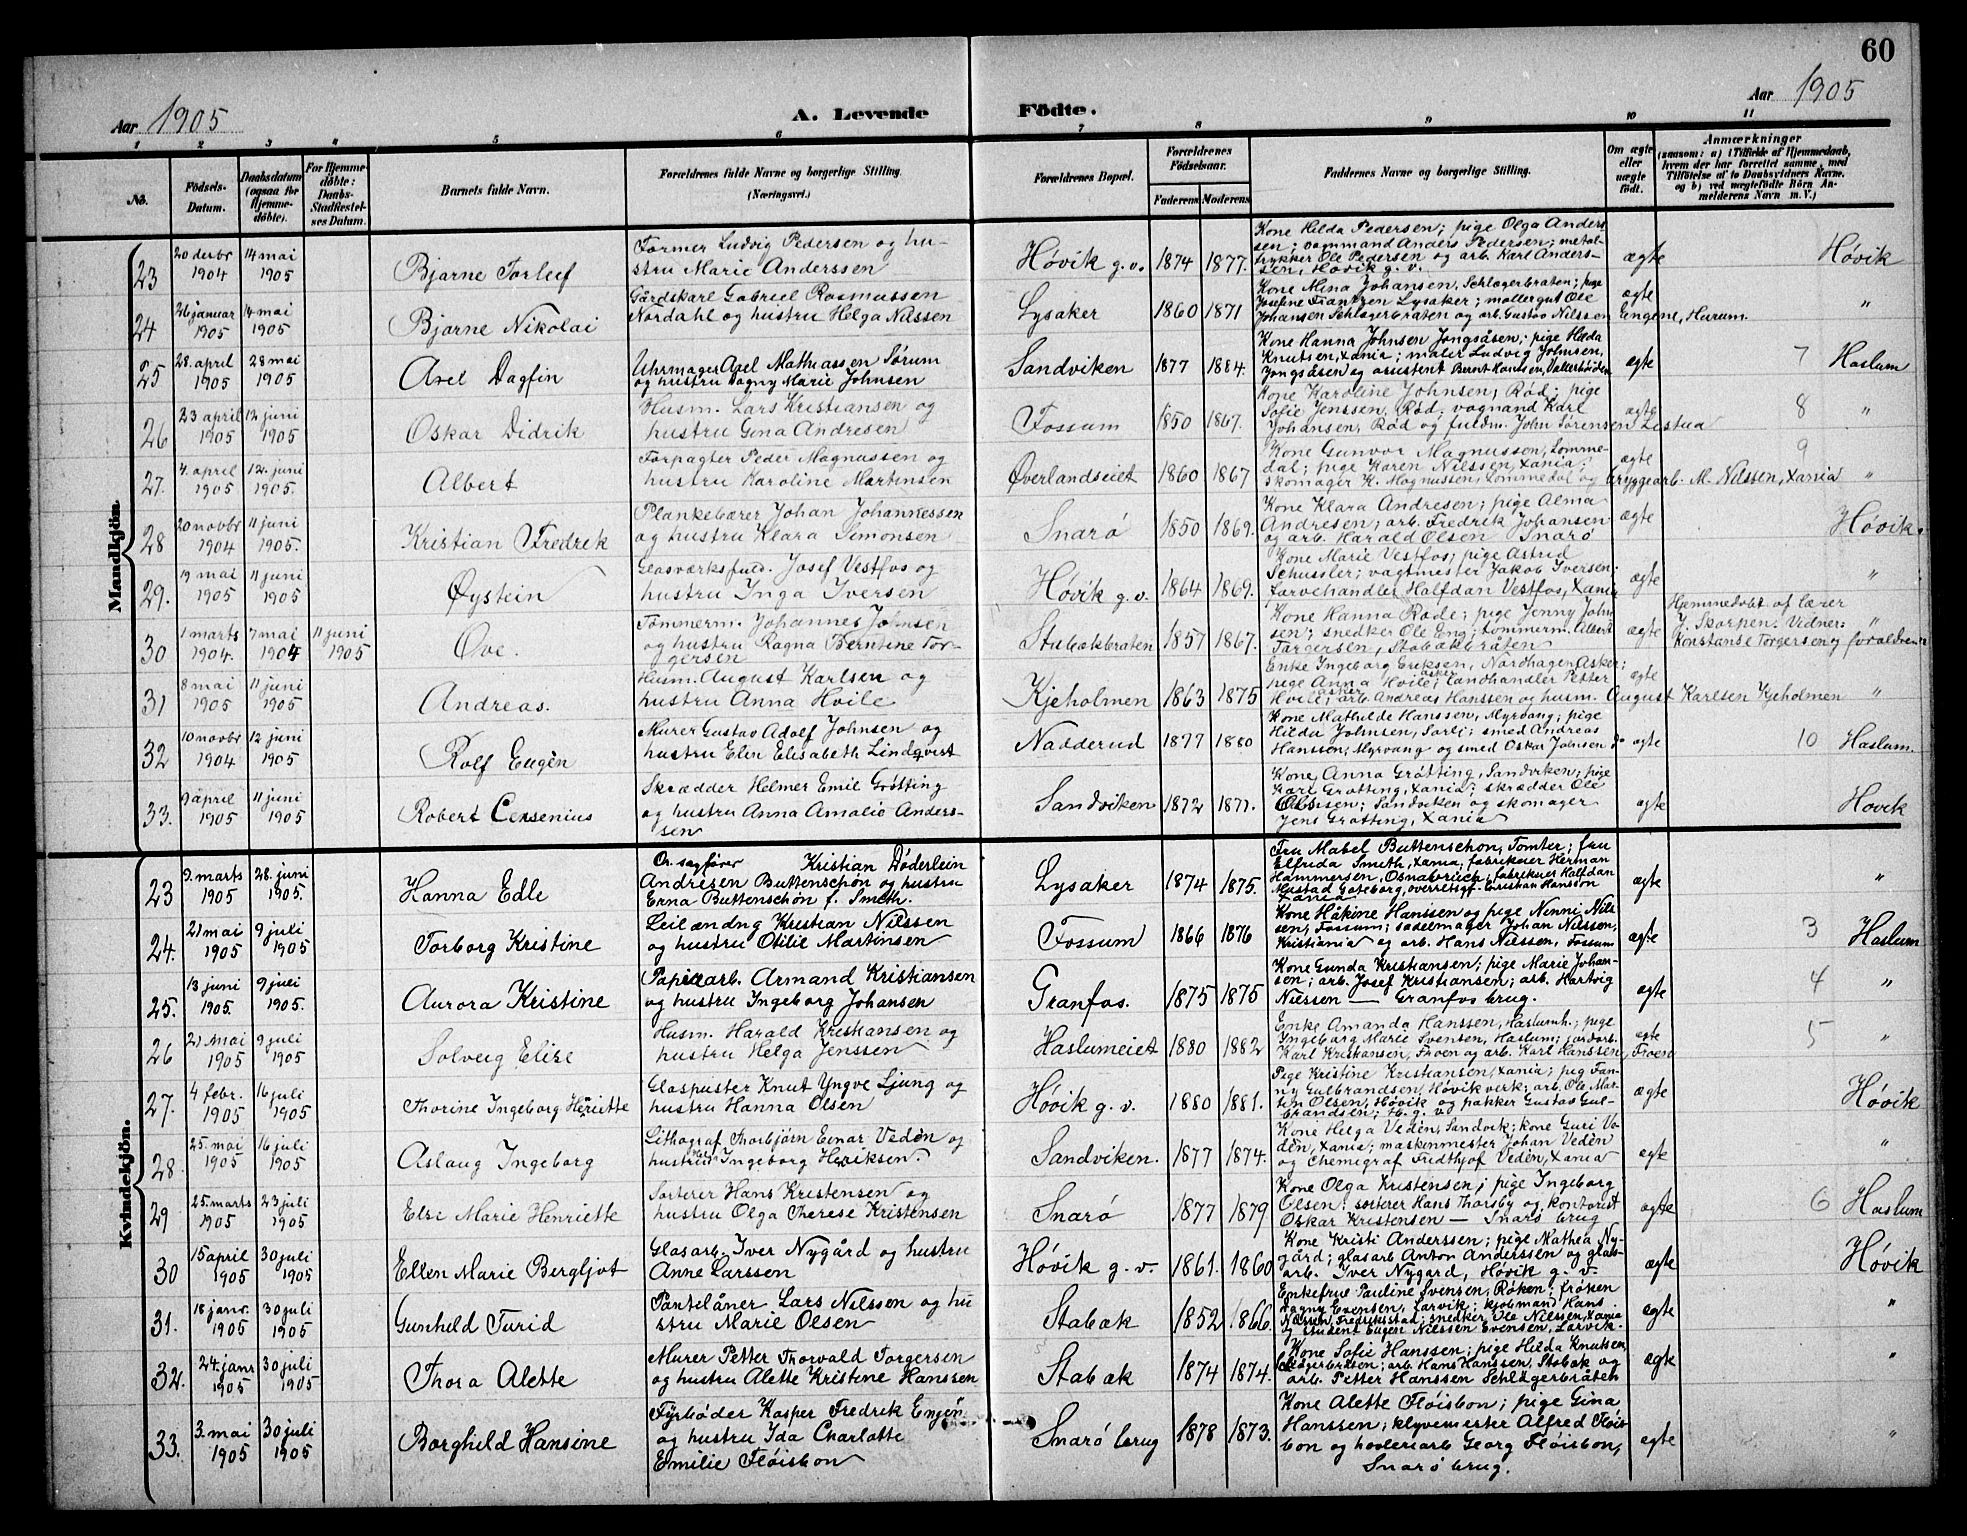 60
Aar 1905
A. Levende
Födte.
Aar 1905
1 2 3 4 5 6 7 8 9 10 11
No.
Födsels-
Datum.
Daabsdatum
(ogsaa for
Hjemme-
döbte).
For Hjemme-
döbte:
Daabs-
Stadfæstel-
ses Datum.
Barnets fulde Navn.
Forældrenes fulde Navne og borgerlige Stilling.
(Næringsvei.)
Forældrenes Bopæl.
Forældrenes
Födselsaar.
Faderens Moderens
Faddernes Navne og borgerlige Stilling.
Om ægte
eller
uægte
födt.
Anmærkninger
(saasom: a) i Tilfælde af Hjemmedaab,
hvem der har forrettet samme, med
Tilföielse af to Daabsvidners Navne.
og b) ved uægtefödte Börn An-
melderens Navn m. V.)
Mandkjön.
23
20 decbr
1904
14 mai
1905
Bjarne Torleif
Former Ludvig Pedersen og hu-
stru Marie Anderssen
Høvik g.v.
1874 1877.
Kone Hilda Pedersen; pige Olga Anders
sen; vammand Anders Pedersen; metal-
trykker Ole Pedersen og arb. Karl Anders-
sen, Høvik g. v.
ægte
Høvik
24
26 januar
1905
14 mai
1905
Bjarne Nikolai
Gårdskarl Gabriel Rasmussen
Nordahl og hustru Helga Nilssen
Lysaker
1860 1871
Kone Mina Johansen, Schlagerbraten; pige
Josefine Frantzen Lysaker; møllergut Ole
Johansen Schlagerbraten og arb. Gustav Nilssen Engene, Hurum.
ægte
"
25
28. april
1905
28 mai
1905
Axel Dagfin
Uhrmager Axel Mathiassen Sørum
og hustru Dagny Marie Johnsen
Sandviken
1877 1884.
Kone Hanna Johnsen Jongsåsen; pige Hilda
Knutsen, Xania; maler Ludvig Johnsen,
Jongsåsen og assistent Bernt Hanssen, Vallerhøiden
ægte
7 Haslum
26
23 april
1905
12 juni
1905
Oskar Didrik
Husm. Lars Kristiansen og
hustru Gina Andresen
Fossum
1850 1867.
Kone Karoline Johnsen, Rød; pige
Sofie Jenssen, Rød; vognmand Karl
Johansen, Rød og fuldm. John Sørensen Lestua
ægte
8 "
27.
4. april
1905
12. juni
1905.
Albert
Forpagter Peder Magnussen og
hustru Karoline Martinsen
Øverlandseiet
1860 1867
Kone Gunvor Magnussen, Lomme-
dal; pige Karen Nilssen, Xania;
skomager K. Magnussen, Lommedal og bryggearb. M. Nilssen, Xania
ægte
9 "
28
20 novbr
1904
11 juni
1905.
Kristian Fredrik
Plankebærer Johan Johannessen
og hustru Klara Simonsen
Snarø
1850 1869.
Kone Klara Andresen; pige Alma
Andresen; arb. Fredrik Johansen
og arb. Harald Olsen Snarø
ægte
Høvik.
29.
19 mai
1905
11 juni
1905
Øystein
Glasværksfuld. Josef Vestfos og
hustru Inga Iversen
Høvik g.v.
1864 1869.
Kone Marie Vestfos; pige Astrid
Schussler; vagtmester Jakob Iversen
farvehandler Halfdan Vestfos, Xania
ægte
"
30
1 marts
1904.
7 mai
1904
11 juni
1905
Ove.
Tømmerm. Johannes Johnsen
og hustru Ragna Berntine Tor-
gersen
Stabækbraten
1857 1867.
Kone Hanna Rode; pige Jenny John
sen; snedker Ole Eng; tømmerm. Albert
Torgersen, Stabækbråten
ægte
Hjemmedøbt af lærer
J. Skorpen. Vidner:
Konstanse Torgersen og forældrene
"
31
8 mai
1905
11 juni
1905
Andreas.
Husm. August Karlsen og
hustru Anna Hvile
Kjeholmen
1863 1875
Enke Ingeborg Eriksen, Nordhagen Asker;
pige Anna Hvile, asker; landhandler Petter
Hvile, asker; arb. Andreas Hanssen og husm. August Karlsen Kjeholmen
ægte
"
32
10 novbr
1904
12 juni
1905
Rolf Eugèn
Murer Gustav Adolf Johnsen og
hustru Elin Elisabeth Lindqvist
Nadderud
1877 1880
Kone Mathilde Hanssen, Myrvang; pige
Hilda Johnsen, Sørli; smed Andreas
Hanssen, Myrvang og smed Oskar Johnsen do
ægte
10 Haslum.
33.
9 april
1905
11 juni
1905
Robert Censenius
Skrædder Helmer Emil Grøtting
og hustru Anna Amalie Anders-
sen
Sandviken
1872 1877.
Kone Anna Grøtting, Sandviken; pige
Kari Grøtting, Xania; skrædder Ole
Olssen; Sandviken og skomager
Jens Grøtting, Xania
ægte
Høvik
Kvindekjön.
23
9. marts
1905
28. juni
1905.
Hanna Edle
Or. sagfører Kristian Døderlein
Andresen Buttenschøn og hustru
Erna Buttenschøn f. Smith.
Lysaker
1874 1875.
Fru Mabel Buttenschøn, Tomter; fru
Elfrida Smith, Xania; fabrikeier Herman
Hammersen, Osnabrück; fabrikeier Halfdan
Mustad Gøteborg, overretssgf. Kristian Hansson
Xania
ægte
"
24.
21 mai
1905
9 juli
1905
Torborg Kristine
Leilændng Kristian Nilssen
og hustru Otilie Martinsen
Fossum
1866 1876
Kone Håkine Hanssen og pige Nenni Nils
sen, Fossum; sadelmager Johan Nilssen,
Kristiania og arb. Hans Nilssen, Fossum
ægte
3 Haslum
25.
13 juni
1905.
9 juli
1905.
Aurora Kristine
Papirarb. Armand Kristiansen
og hustru Ingeborg Johansen
Granfos.
1875 1875
Kone Gunda Kristiansen; pige Marie Johan-
sen; arb. Josef Kristiansen; arb. Hartvig
Nilssen — Granfos brug.
ægte
4 "
26
21 mai
1905
9 juli
1905
Solveig Elise
Husm. Harald Kristiansen og
hustru Helga Jenssen
Haslumeiet
1880 1882
Enke Amanda Hanssen, Haslumh.; pige
Ingeborg Marie Svensen, Haslum; jordarb.
Karl Kristiansen, Thoen og arb. Karl Hanssen, Froen
ægte
5 "
27.
4 febr.
1905
16 juli
1905
Thorine Ingeborg Henriette
Glaspuster Knut Yngve Ljung og
hustru Hanna Olsen
Høvik g. v.
1880 1881.
Pige Kristine Kristiansen, Xania; pig Fan-
ny Gulbrandsen, Høvik verk; arb. Ole Mar-
tin Olsen, Høvik og pakker Gustav Gul-
brandsen, H. g. v.
ægte
Høvik
28.
25. mai
1905
16 juli
1905
Aslaug Ingeborg
Lithograf Thorbjørn Einar Vedèn og
hustru Ingeborg Henriksen.
Sandviken.
1877 1874.
Kone Helga Vedèn, Sandvik; kone Guri Ve-
dèn, Xania; maskinmester Johan Vedèn
og Chemigraf Fridthjof Vedèn, Xania
ægte
"
29
25. marts
1905
23 juli
1905
Elsi Marie Henriette
Sorterer Hans Kristensen og
hustru Olga Therese Kristensen
Snarø
1877 1879
Kone Olga Kristensen; pige Ingeborg
Olsen; sorterer Hans Thorsby og kontorist
Oskar Kristensen — Snarø brug
ægte
6 Haslum
30
15 april
1905
30 juli
1905
Ellen Marie Bergljot
Glasarb. Iver Nygård og hustru
Anne Larssen
Høvik g. v.
1861. 1860
Kone Kristi Anderssen; pige Mathea Ny-
gård; glasarb Anton Anderssen og glas-
arb. Iver Nygard, Høvik g. v.
ægte
Høvik
31.
18 janr.
1905
30 juli
1905
Gunhild Turid
Pantelåner Lars Nilssen og hu
stru Marie Olsen
Stabæk
1852 1866.
Enkefrue Pauline Svensen, Røken; frøken
Dagny Evensen, Larvik; kjøbmand Hans
Nilssen, Fredriksstad; snedker Ole Nilssen, Xania
og student Eugen Nilssen Evensen, Larvik
ægte
"
32.
24. janr
1905
30 juli
1905
Thora Alette
Murer Petter Thorvald Torgersen
og hustru Alette Kristine Hanssen
Stabæk
1874 1874.
Kone Sofie Hanssen; pige Hilda Knutsen,
Schlagerbråten; arb. Hans Hanssen, Stabæk og
arb. Petter Hanssen Schlagerbråten
ægte
"
33.
3. mai
1905
30 juli
1905
Borghild Hansine
Fyrbøder Kasper Fredrik Engen
og hustru Ida Charlotte
Emilie Fløisbon
Snarø brug
1878 1873.
Kone Alette Fløisbon; pige Gina
Hanssen; klyvemester Alfred Fløis
bon og høvleriarb Georg Fløisbon,
Snarø brug.
ægte
"